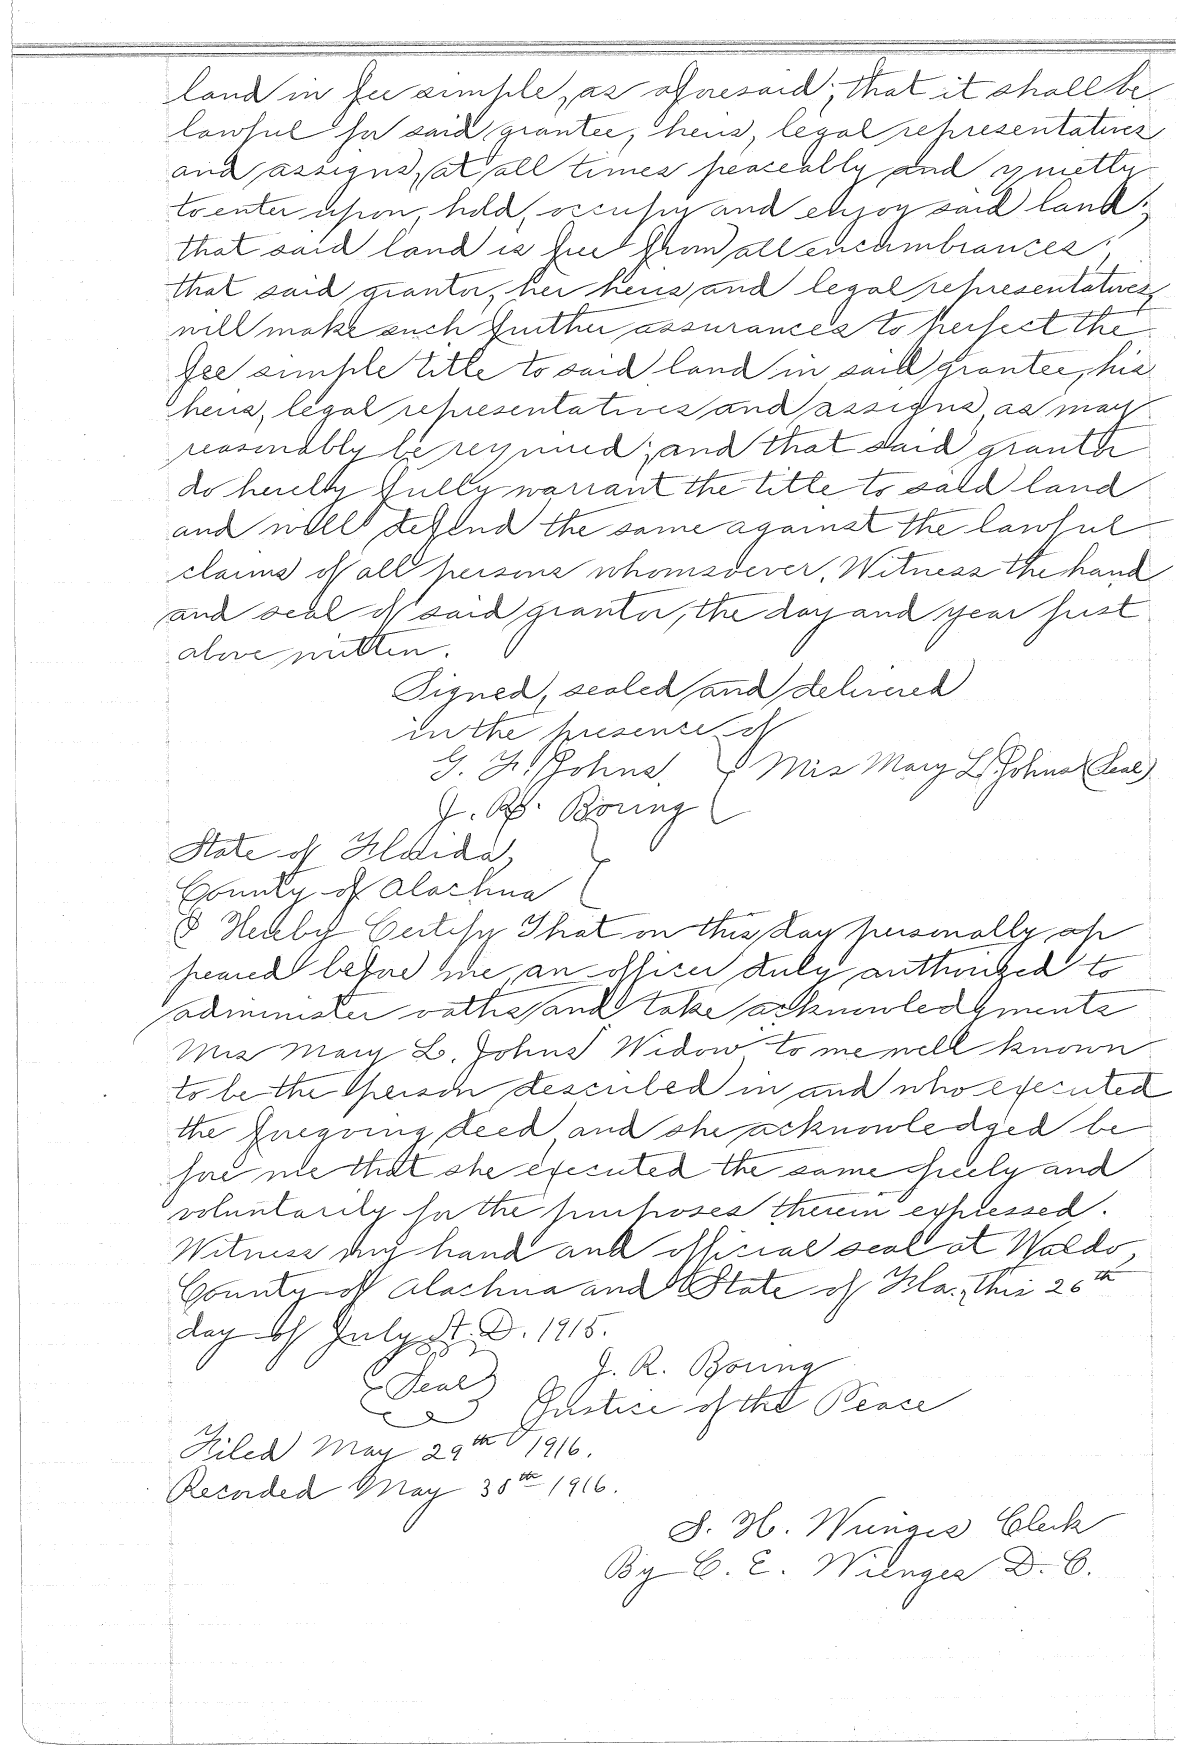 land in fee simple, as aforesaid; that it shall be
lawful for said grantee, heirs, legal representatives
and assigns, at all times peaceably and quietly
to enter upon, hold, occupy and enjoy said land;
that said land is free from all encumbrances;
that said grantor, her heirs and legal representatives,
will make such further assurances to perfect the
fee simple title to said land in said grantee, his
heirs, legal representatives and assigns, as may
reasonably be required; and that said grantor
do hereby fully warrant the title to said land
and will defend the same against the lawful
claims of all persons whomsoever. Witness the hand
and seal of said grantor, the day and year first
above written.
Signed, sealed and delivered
in the presence of
G. F. Johns. } Mrs Mary L. Johns (Seal)
J. R. Boring
State of Florida, }
County of Alachua
I Hereby Certify That on this day personally ap
peared before me, an officer duly authorized to
administer oaths and take acknowledgments
Mrs Mary L. Johns "Widow" to me well known
to be the person described in and who executed
the foregoing deed, and she acknowledged be
fore me that she executed the same freely and
voluntarily for the purposes therein expressed.
Witness my hand and official seal at Waldo,
County of Alachua and State of Fla., this 26th
day of July A. D. 1915.
(Seal) J. R. Boring
Justice of the Peace
Filed May 29th 1916.
Recorded May 30th 1916.
S. H. Wienges Clerk
By C. E. Wienges D. C.